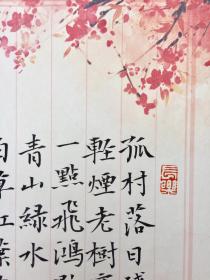 孤村落日殘
輕煙老樹寒
一點飛鴻影
青山綠水
白草紅葉
長樂